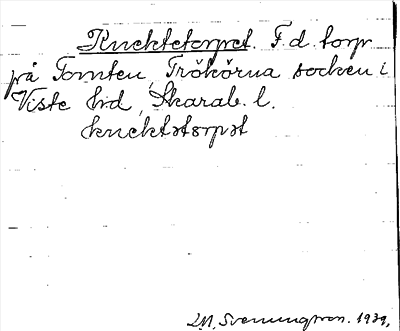 Knektetorpet. F.d. torp
på Tomten, Trökörna socken i
Viste hd, Skarab. l.
knektətorpət
M. Svenungsson. 1939.